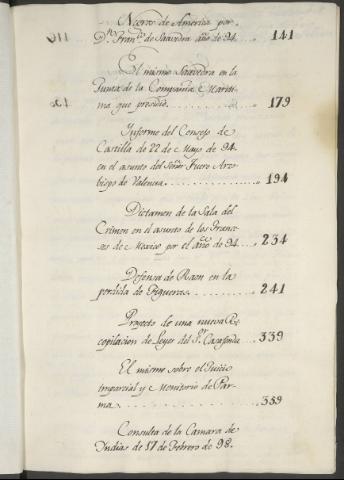 Negros de America por
D.ⁿ Fran.ᶜᵒ de Saavedra año de 94. 141
El mismo Saavedra en la
Junta de la Compañia Mariti-
ma que presidió. 179
Informe del Consejo de
Castilla de 22 de Mayo de 94.
en el asunto del Señor Fuero Arzo-
bispo de Valencia. 194
Dictamen de la Sala del
Crimen en el asunto de los France-
ses de Mexico por el año de 94. 234
Defensa de Raon en la
perdida de Figueras. 241
Proyecto de una nueva Re-
copilacion de Leyes del S.ᵒʳ Casafonda. 339
El mismo sobre el Juicio
imparcial y Monitorio de Par-
ma. 359
Consulta de la Camara de
Indias de 17 de Febrero de 98.